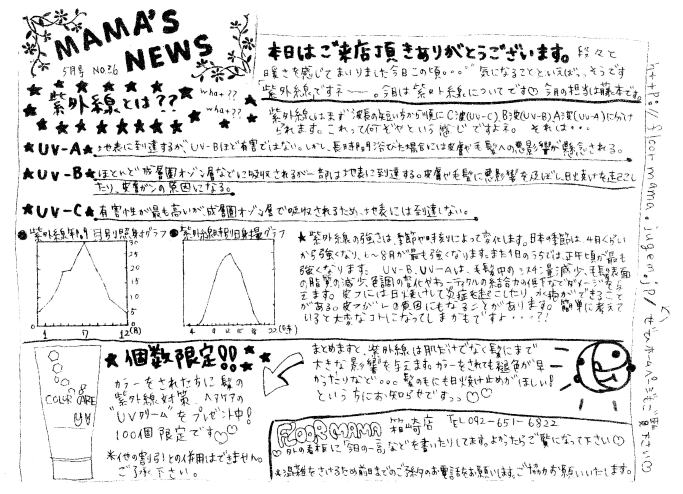 MAMA'S NEWS
5月号 No.36
本日はご来店頂きありがとうございます。段々と
暖さを感じてまいりました今日この頃。。。気になることといえば、そうです
紫外線ですネ〜。今月は紫外線についてです♡ 今月の担当は藤本です。
紫外線とは??
what??
what??
紫外線はまず波長の短い方から順にC波(UV-C)、B波(UV-B)、A波(UV-A)に分け
られます。これって何ぞやという感じですよネ。それは・・・
★UV-A→地表に到達するが、UV-Bほど有害ではない。しかし、長時間浴びた場合には皮膚や毛髪への悪影響が懸念される。
★UV-B→ほとんど成層圏オゾン層などに吸収されるが一部は地表に到達する。皮膚や毛髪に悪影響を及ぼし、日やけを起こし
たり、皮膚ガンの原因になる。
★UV-C→有害性が最も高いが成層圏オゾン層で吸収されるため、地表には到達しない。
紫外線年間月別照射グラフ
1 7 12(月)
紫外線時刻別量グラフ
4 6 8 10 12 14 16 18 20(時)
★紫外線の強さは、季節や時刻によって変化します。日本の季節は4月くらい
から強くなり、6〜8月が最も強くなります。また1日のうちでは、正午頃が最も
強くなります。UV-B、UV-Aは、毛髪中のシスチン量減少、毛髪表面
の脂質の減少、色調の変化やキューティクルの結合力の低下などダメージを与
えます。皮フには日やけして炎症を起こしたり、水疱ができることが
ある。皮フがんの原因にもなることがあります。簡単に考えて
いると大変なコトになってしまうかもですよ・・・??!
★個数限定!!★
カラーをされた方に髪の
紫外線対策、ヘアケアの
"UVクリーム"をプレゼント中!
100個限定です♡♡
※他の割引との併用はできません。
ご了承下さい。
COLOR CARE
UV
まとめますと、紫外線は肌だけでなく髪にまで
大きな影響を与えます。カラーをされても褪色が早
かったりなど・・・髪の毛にも日焼け止めがほしい!
という方にお知らせですっっ♡
FLOOR MAMA 箱崎店 TEL 092-651-6822
♡外の看板に「今日の一言」などを書いたりしてます。よかったらご覧になって下さい♡
※混雑をさけるため前日までのご予約のお電話をお願いします。ご協力お願いいたします。
http://floormama.jugem.jp/